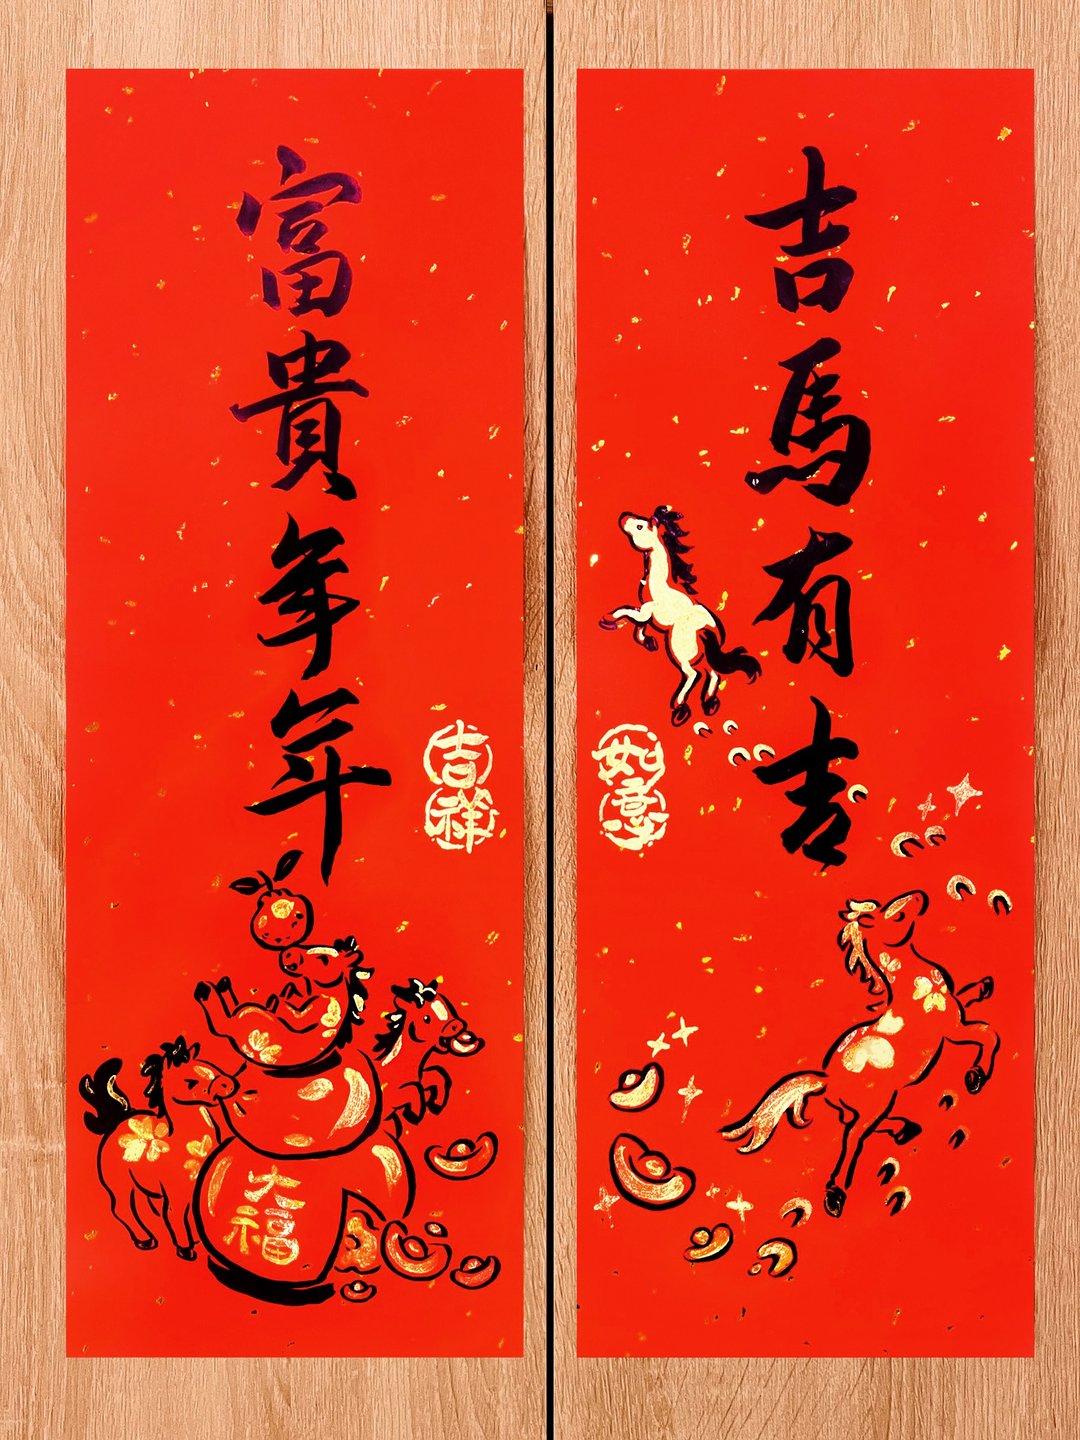 吉馬有吉
如意
富貴年年
吉祥
大福